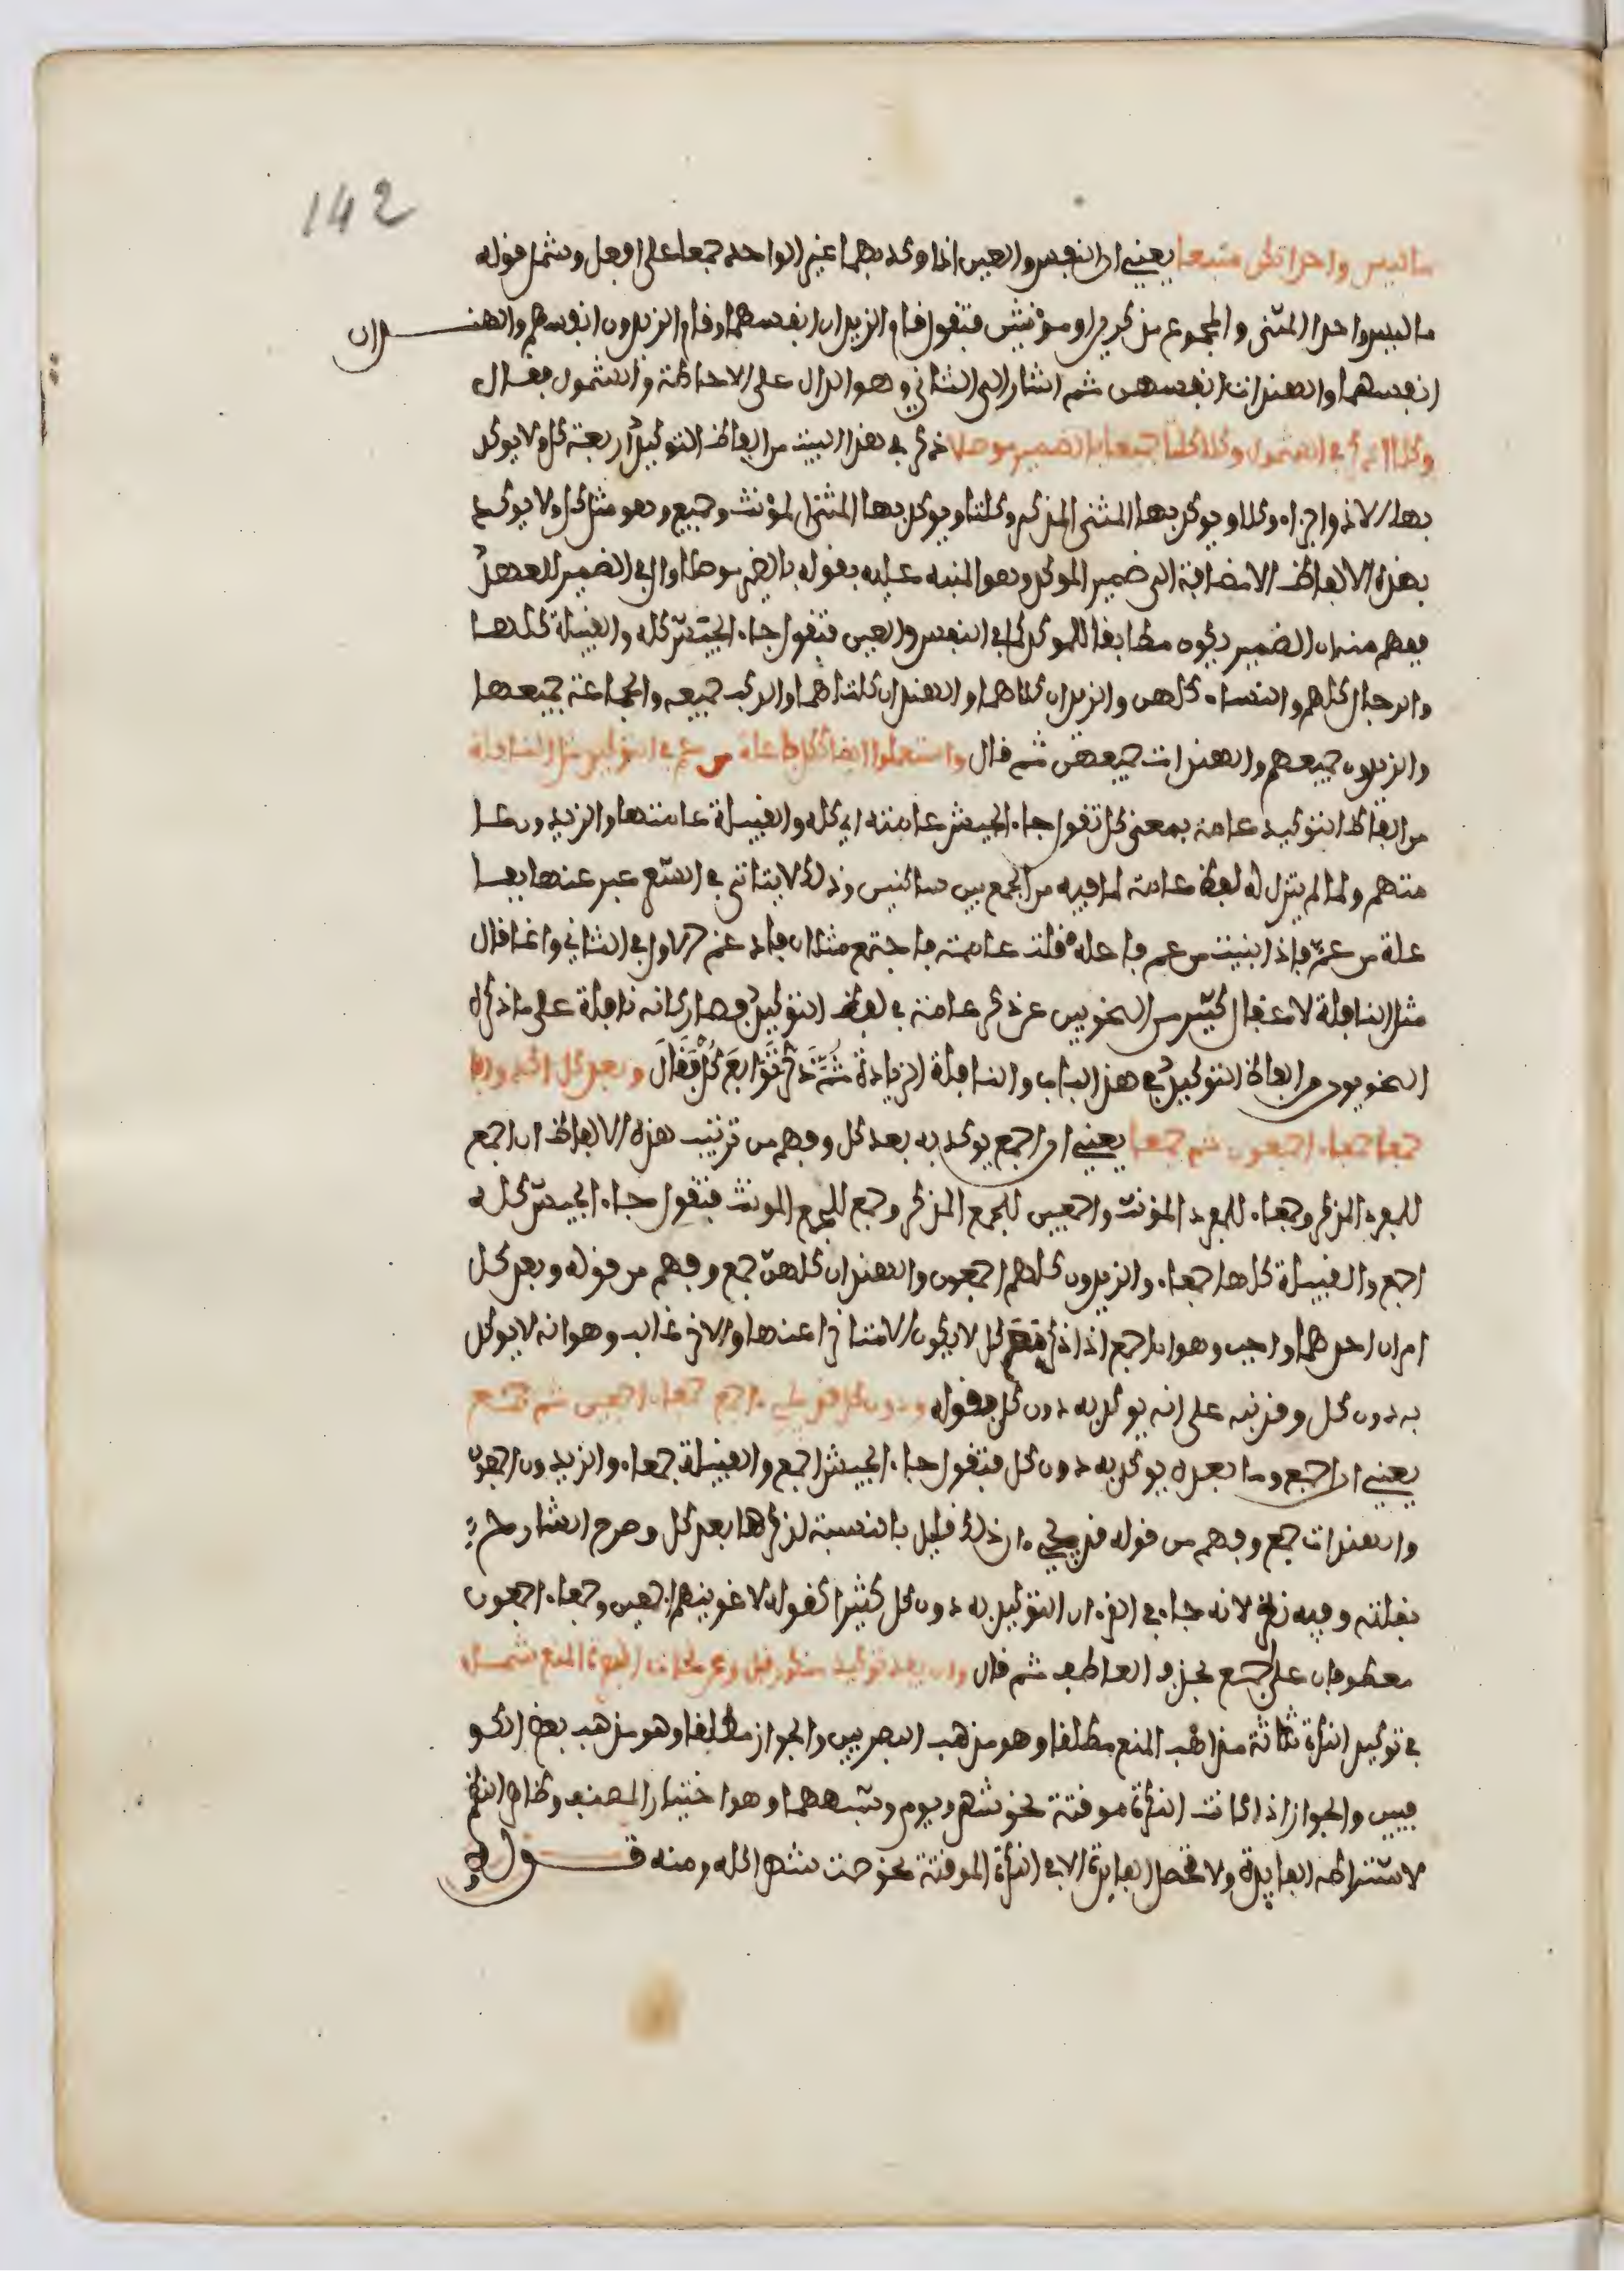 142
ما ليس واحدا تكن متبعا يعني ان النفس والعين اذا وكد بهما غير الواحد جمعا على افعل وشمل قوله
ما ليس واحدا المثنى والمجموع مذكرين او مؤنثين فتقول قام الزيدان انفسهما وقام الزيدون انفسهم والهندان
انفسهما والهندات انفسهن ثم اشار الى الثاني وهو الدال على الاحاطة والشمول فقال
وكلا اذكر في الشمول وكلا كلتا جميعا بالضمير موصلا ذكر في هذا البيت من الفاظ التوكيد اربعة كل ولا يوكد
بها الا ذو اجزاء وكلا ويوكد بها المثنى المذكر وكلتا ويوكد بها المثنى المؤنث وجميع وهو مثل كل ولا يوكد
بهذه الالفاظ الا مضافة الى ضمير الموكد وهو المنبه عليه بقوله بالضمير موصلا وال في الضمير للعهد
ففهم منه ان الضمير يكون مطابقا للموكد كما في النفس والعين فتقول جاء الجيش كله والقبيلة كلها
والرجال كلهم والنساء كلهن والزيدان كلاهما والهندان كلتاهما والركب جميعه والجماعة جميعها
والزيدون جميعهم والهندات جميعهن ثم قال واستعملوا ايضا ككل فاعله من عم في التوكيد مثل النافلة
من الفاظ التوكيد عامة بمعنى كل تقول جاء الجيش عامته اي كله والقبيلة عامتها والزيدون عا
متهم ولما لم يتزن له لفظ عامة لما فيه من الجمع بين ساكنين وذلك لا يتاتى في الشعر عبر عنها بفا
علة من عم فاذا بنيت من عم فاعلة قلت عاممة فاجتمع مثلان فادغم الاول في الثاني وانما قال
مثل النافلة لاغفال كثير من النحويين عن ذكر عامة في لفظ التوكيد فصار كانه نافلة على ما ذكره
النحويون من الفاظ التوكيد في هذا الباب والنافلة الزيادة ثم ذكر توابع كل فقال وبعد كل اكدوا با
جمعا جمعاء اجمعين ثم جمعا يعني ان اجمع يوكد به بعد كل وفهم من ترتيب هذه الالفاظ ان اجمع
للمفرد المذكر وجمعاء للمفرد المؤنث واجمعين للجمع المذكر وجمع للجمع المونث فتقول جاء الجيش كله
اجمع والقبيلة كلها جمعاء والزيدون كلهم اجمعون والهندات كلهن جمع وفهم من قوله وبعد كل
امران احدهما واجب وهو ان اجمع اذا ذكر مع كل لا يكون الا متاخرا عنها والاخر غالب وهو انه لا يوكد
به دون كل وقد نبه على انه يوكد به دون كل بقوله ودون كل قد يجيء اجمع جمعاء اجمعون ثم جمع
يعني ان اجمع وما بعده يوكد به دون كل فتقول جاء الجيش اجمع والقبيلة جمعاء والزيدون اجمعون
والهندات جمع وفهم من قوله قد يجيء ان ذلك قليل بالنسبة لذكرها بعد كل وصرح الشارح
بقلته وفيه نظر لانه جاء في القرءان التوكيد به دون كل كثيرا كقوله لاغوينهم اجمعين وجمعاء اجمعون
معطوفان على اجمع بحذف العاطف ثم قال وان يفد توكيد منكور قبل وعن نحاة البصرة المنع شمل
في توكيد النكرة ثلاثة مذاهب المنع مطلقا وهو مذهب البصريين والجواز مطلقا وهو مذهب بعض الكو
فيين والجواز اذا كانت النكرة موقتة نحو شهر ويوم وشبههما وهو اختيار المصنف وظاهر النظم
لاشتراطه الفايدة ولا تحصل الفايدة الا في النكرة الموقتة نحو صمت شهرا كله ومنه قوله